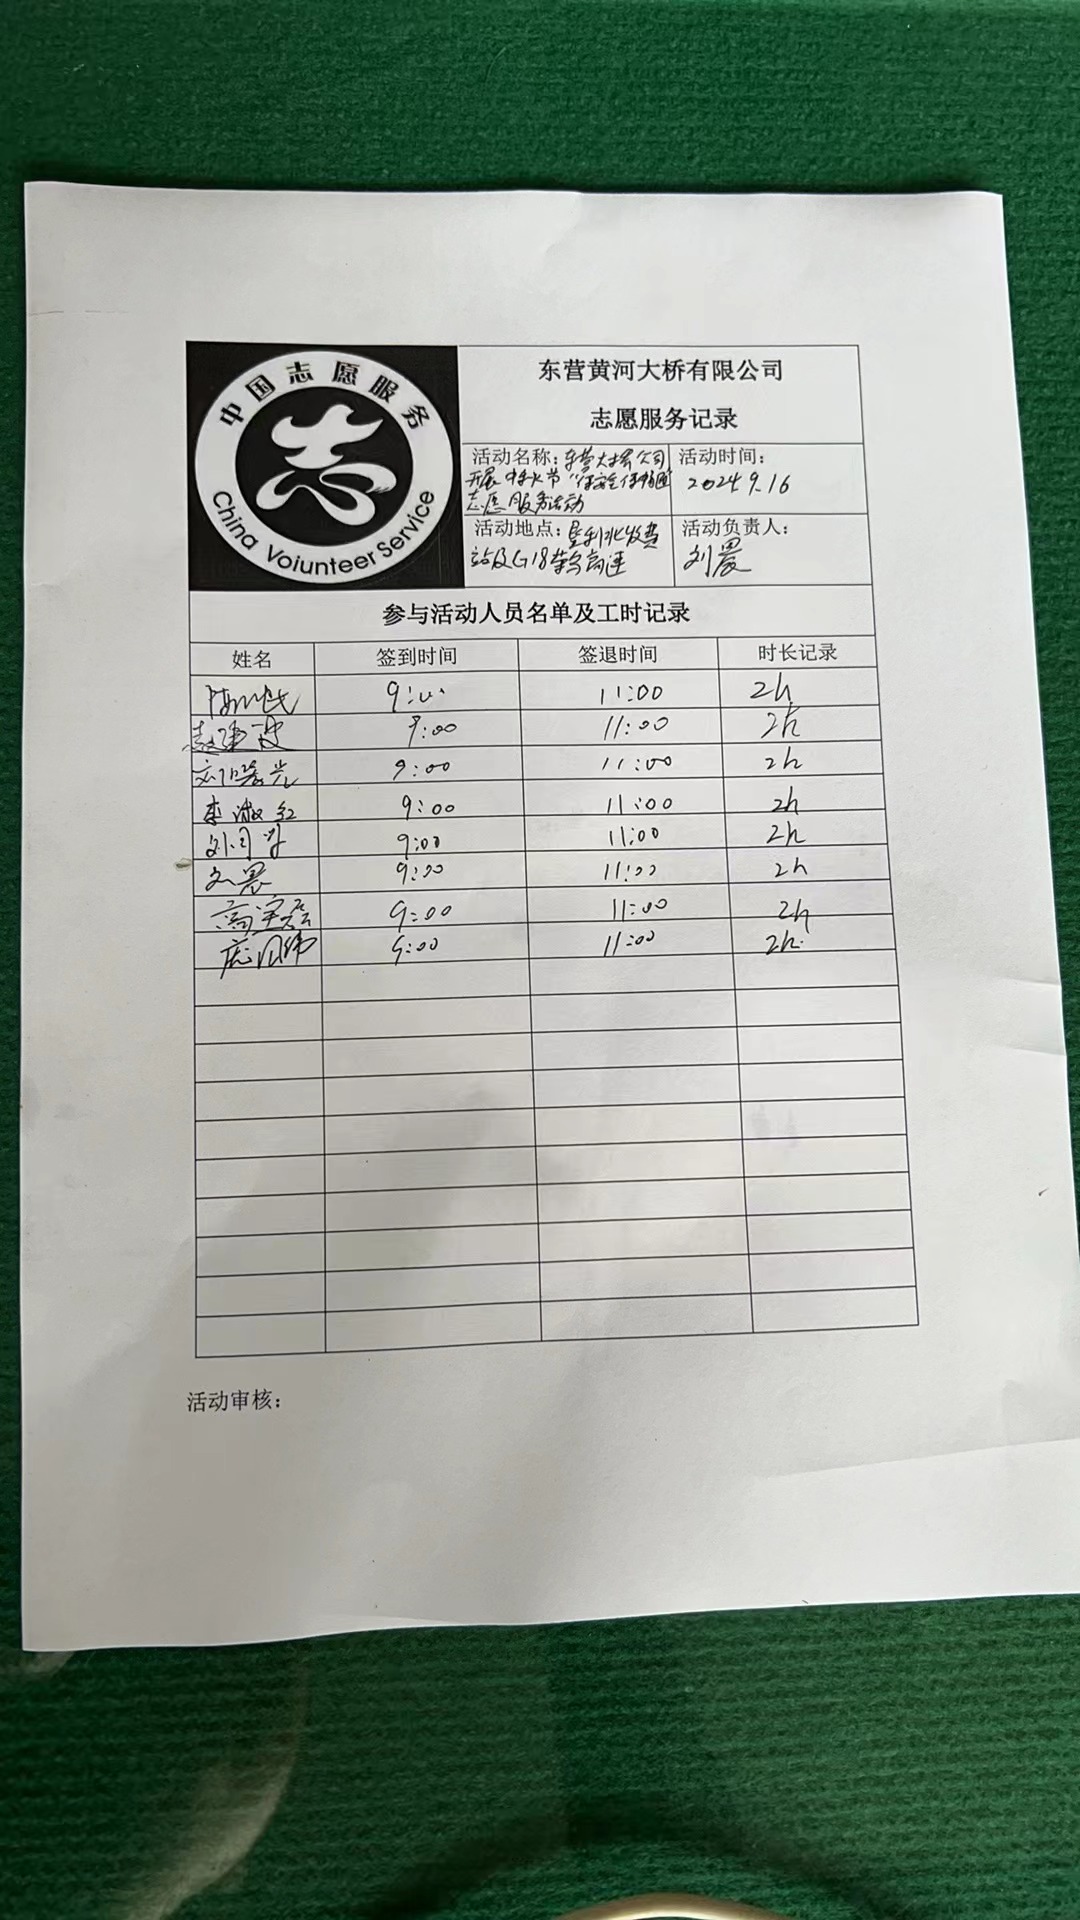 中国志愿服务
志
China Volunteer Service
东营黄河大桥有限公司
志愿服务记录
活动名称：东营大桥公司
开展中秋节“保安全保畅通
志愿服务活动
活动时间：
2024.9.16
活动地点：垦利北收费
站及G18荣乌高速
活动负责人：
刘晨
参与活动人员名单及工时记录
姓名 签到时间 签退时间 时长记录
9:00 11:00 2h
赵建波 9:00 11:00 2h
刘曙光 9:00 11:00 2h
李淑红 9:00 11:00 2h
9:00 11:00 2h
刘晨 9:00 11:00 2h
高 9:00 11:00 2h
9:00 11:00 2h.
活动审核：